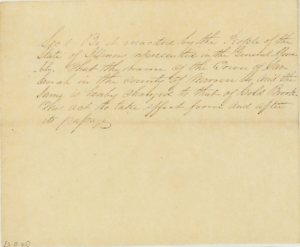 Sec 1 Be it enacted by the People of the
State of Illinois represented in the General Assem
bly, That the name of the Town of
in the county of Warren be, and the
same is hereby changed to that of Cold Brook.
This act to take effect from and after
its passage